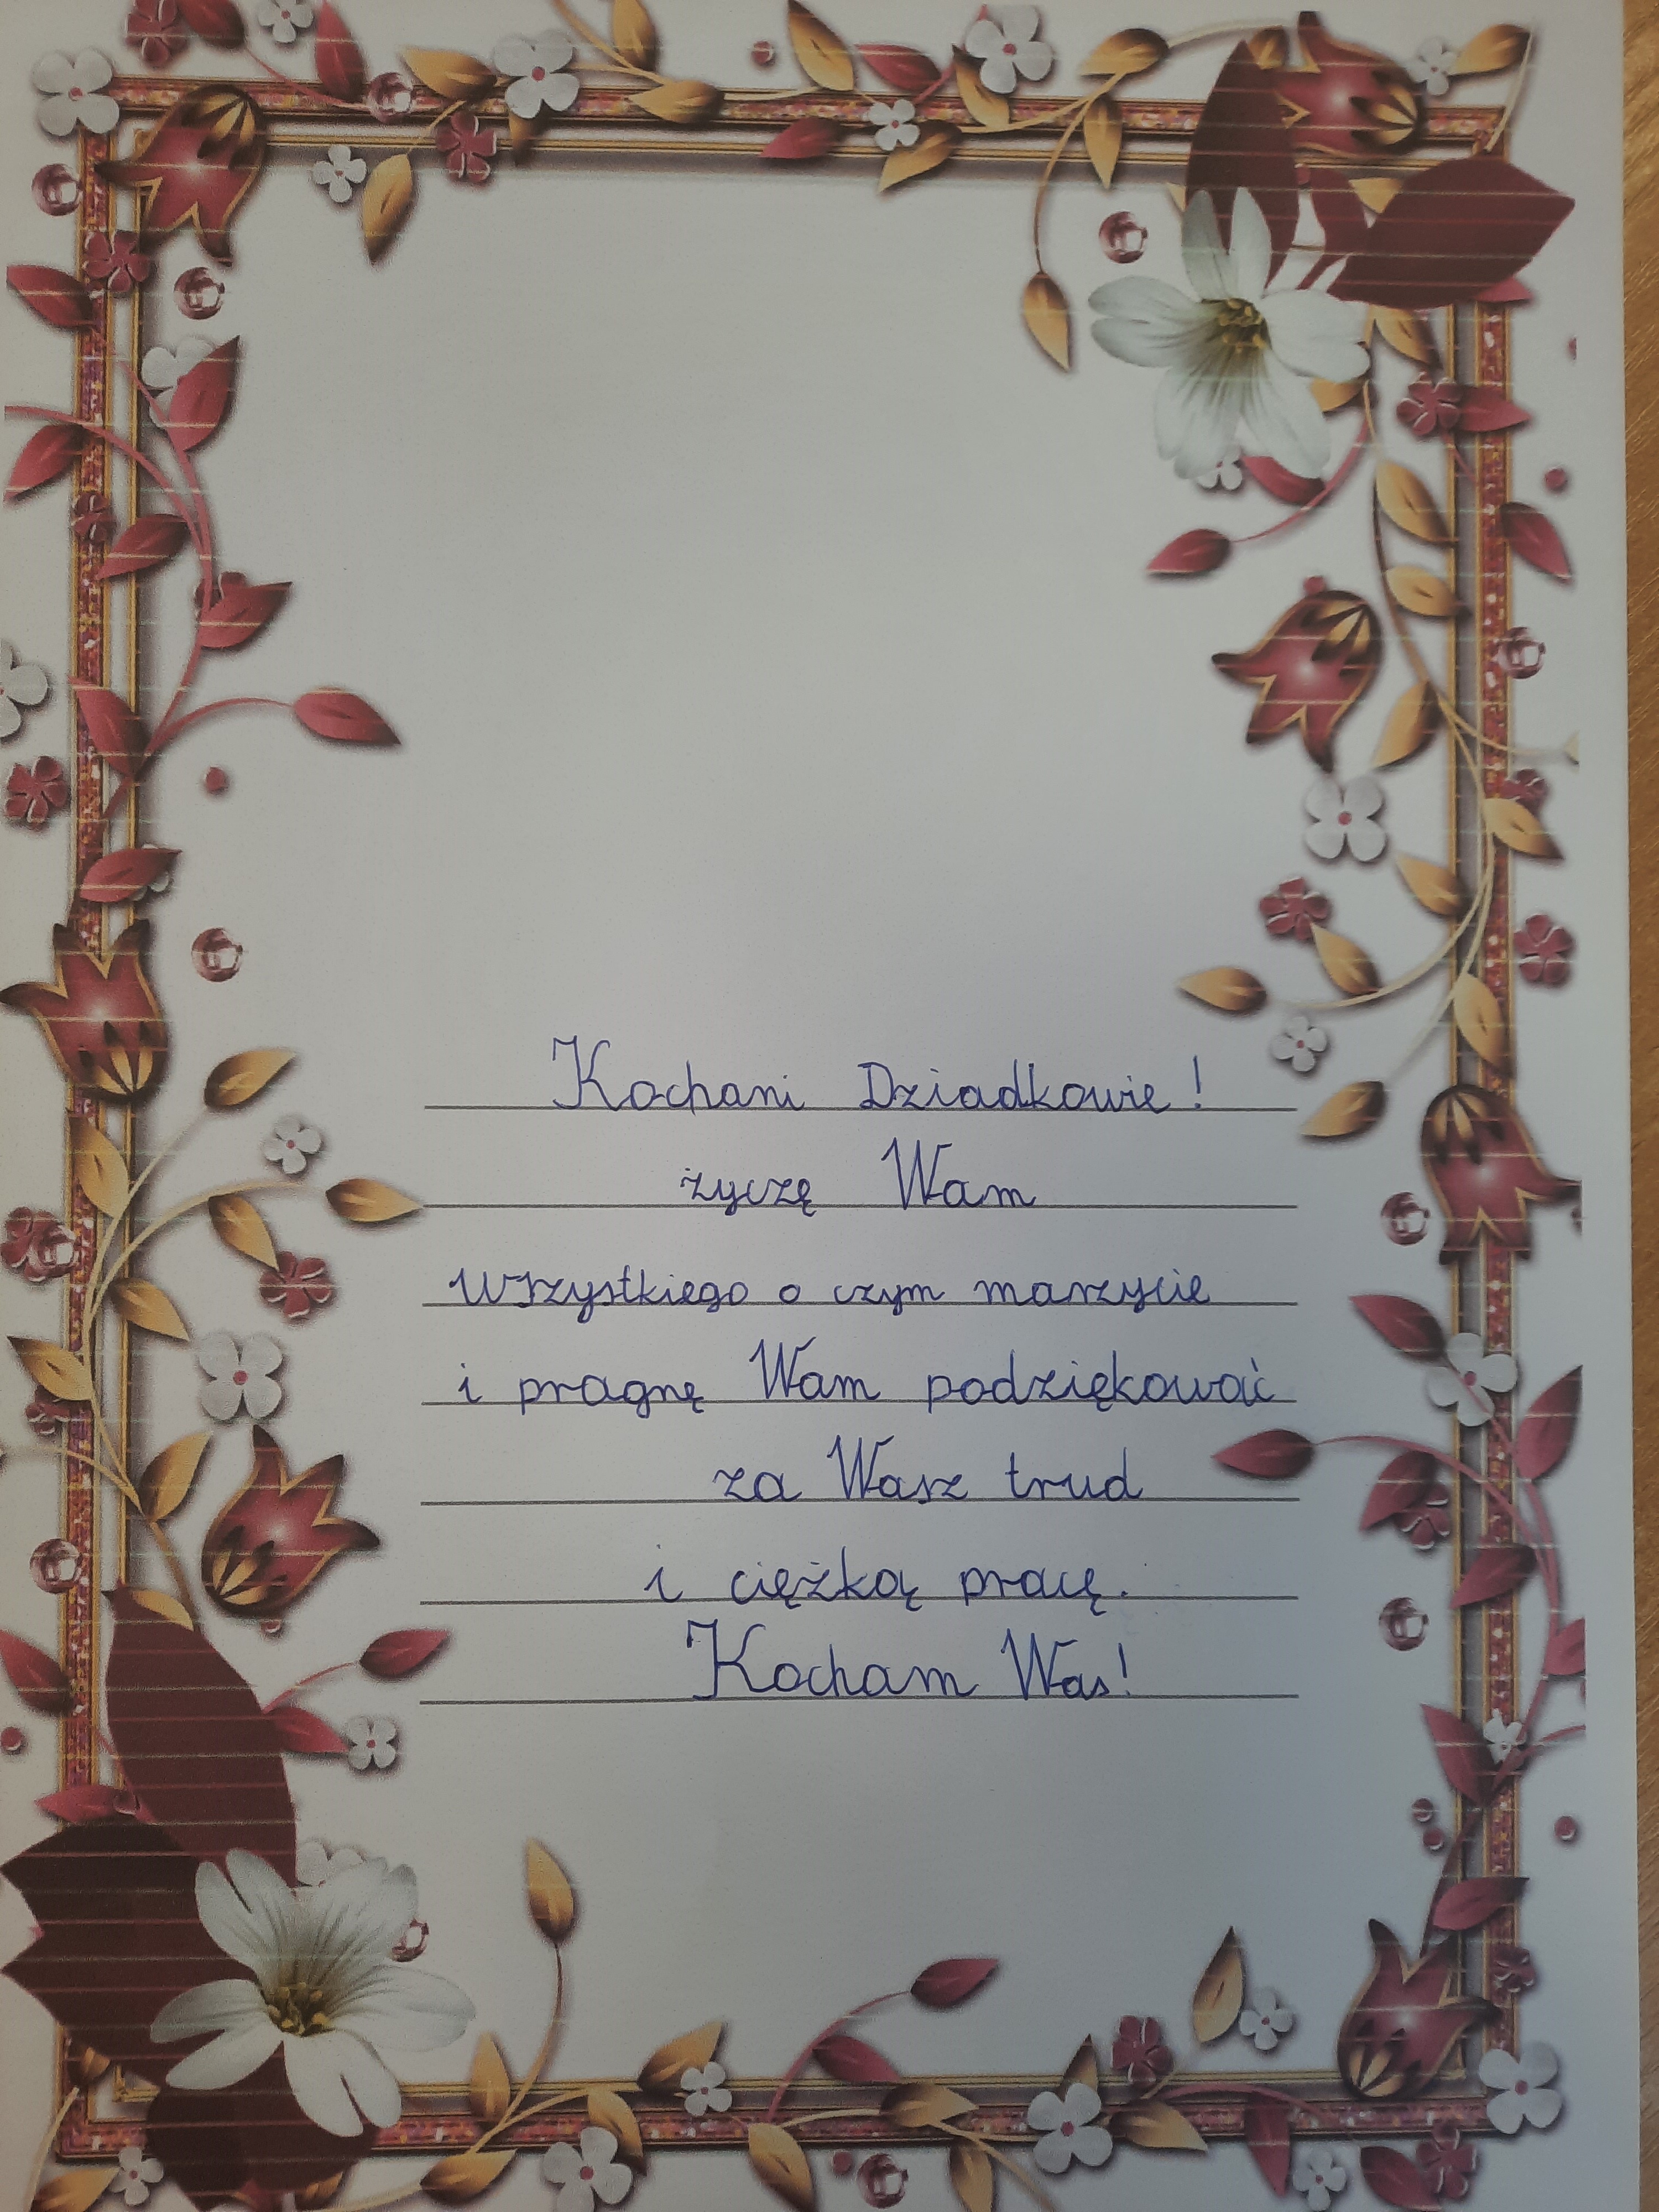 Kochani Dziadkowie!
życzę Wam
wszystkiego o czym marzycie
i pragnę Wam podziękować
za Wasz trud
i ciężką pracę.
Kocham Was!